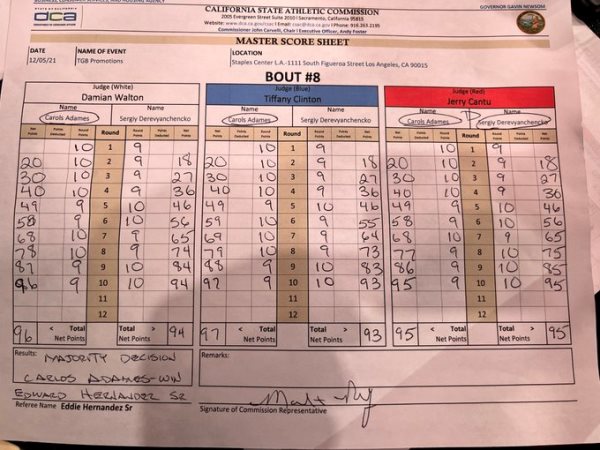 BUSINESS, CONSUMER SERVICES, AND HOUSING AGENCY
GOVERNOR GAVIN NEWSOM
STATE OF CALIFORNIA
dca
DEPARTMENT OF CONSUMER AFFAIRS
CALIFORNIA STATE ATHLETIC COMMISSION
2005 Evergreen Street Suite 2010 | Sacramento, California 95815
Website: www.dca.ca.gov/csac | Email: csac@dca.ca.gov | Phone: 916.263.2195
Commissioner John Carvelli, Chair | Executive Officer, Andy Foster
MASTER SCORE SHEET
DATE NAME OF EVENT LOCATION
12/05/21 TGB Promotions Staples Center L.A. -1111 South Figueroa Street Los Angeles, CA 90015
BOUT #8
Judge (White) Judge (Blue) Judge (Red)
Damian Walton Tiffany Clinton Jerry Cantu
Name Name Name Name Name Name
Carols Adames Sergiy Derevyanchencko Carols Adames Sergiy Derevyanchencko Carols Adames Sergiy Derevyanchencko
Net Points Points Deducted Round Points Round Round Points Points Deducted Net Points Net Points Points Deducted Round Points Round Round Points Points Deducted Net Points Net Points Points Deducted Round Points Round Round Points Points Deducted Net Points
10 1 9 10 1 9 10 1 9
20 10 2 9 18 20 10 2 9 18 20 10 2 9 18
30 10 3 9 27 30 10 3 9 27 30 10 3 9 27
40 10 4 9 36 40 10 4 9 36 40 10 4 9 36
49 9 5 10 46 49 9 5 10 46 49 9 5 10 46
58 9 6 10 56 59 10 6 9 55 58 9 6 10 56
68 10 7 9 65 69 10 7 9 64 68 10 7 9 65
78 10 8 9 74 79 10 8 9 73 77 9 8 10 75
87 9 9 10 84 88 9 9 10 83 86 9 9 10 85
96 9 10 10 94 97 9 10 10 93 95 9 10 10 95
11 11 11
12 12 12
96 < Total Net Points Total > Net Points 94 97 < Total Net Points Total > Net Points 93 95 < Total Net Points Total > Net Points 95
Results: MAJORITY DECISION Remarks:
CARLOS ADAMES-WIN
EDWARD HERNANDEZ SR
Referee Name Eddie Hernandez Sr Signature of Commission Representative